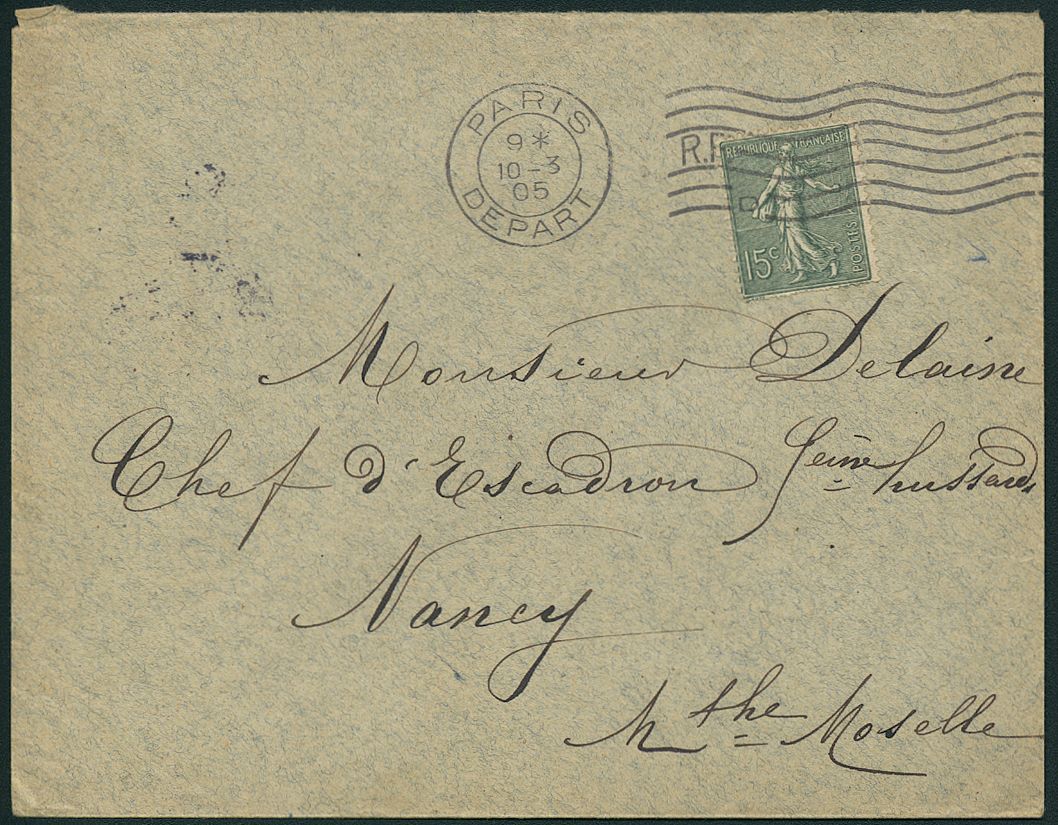 PARIS
9*
10-3
05
DEPART
R.F.
REPUBLIQUE FRANÇAISE
15c
POSTES
Monsieur Delaine
Chef d'Escadron 5eme hussards
Nancy
Mthe Moselle